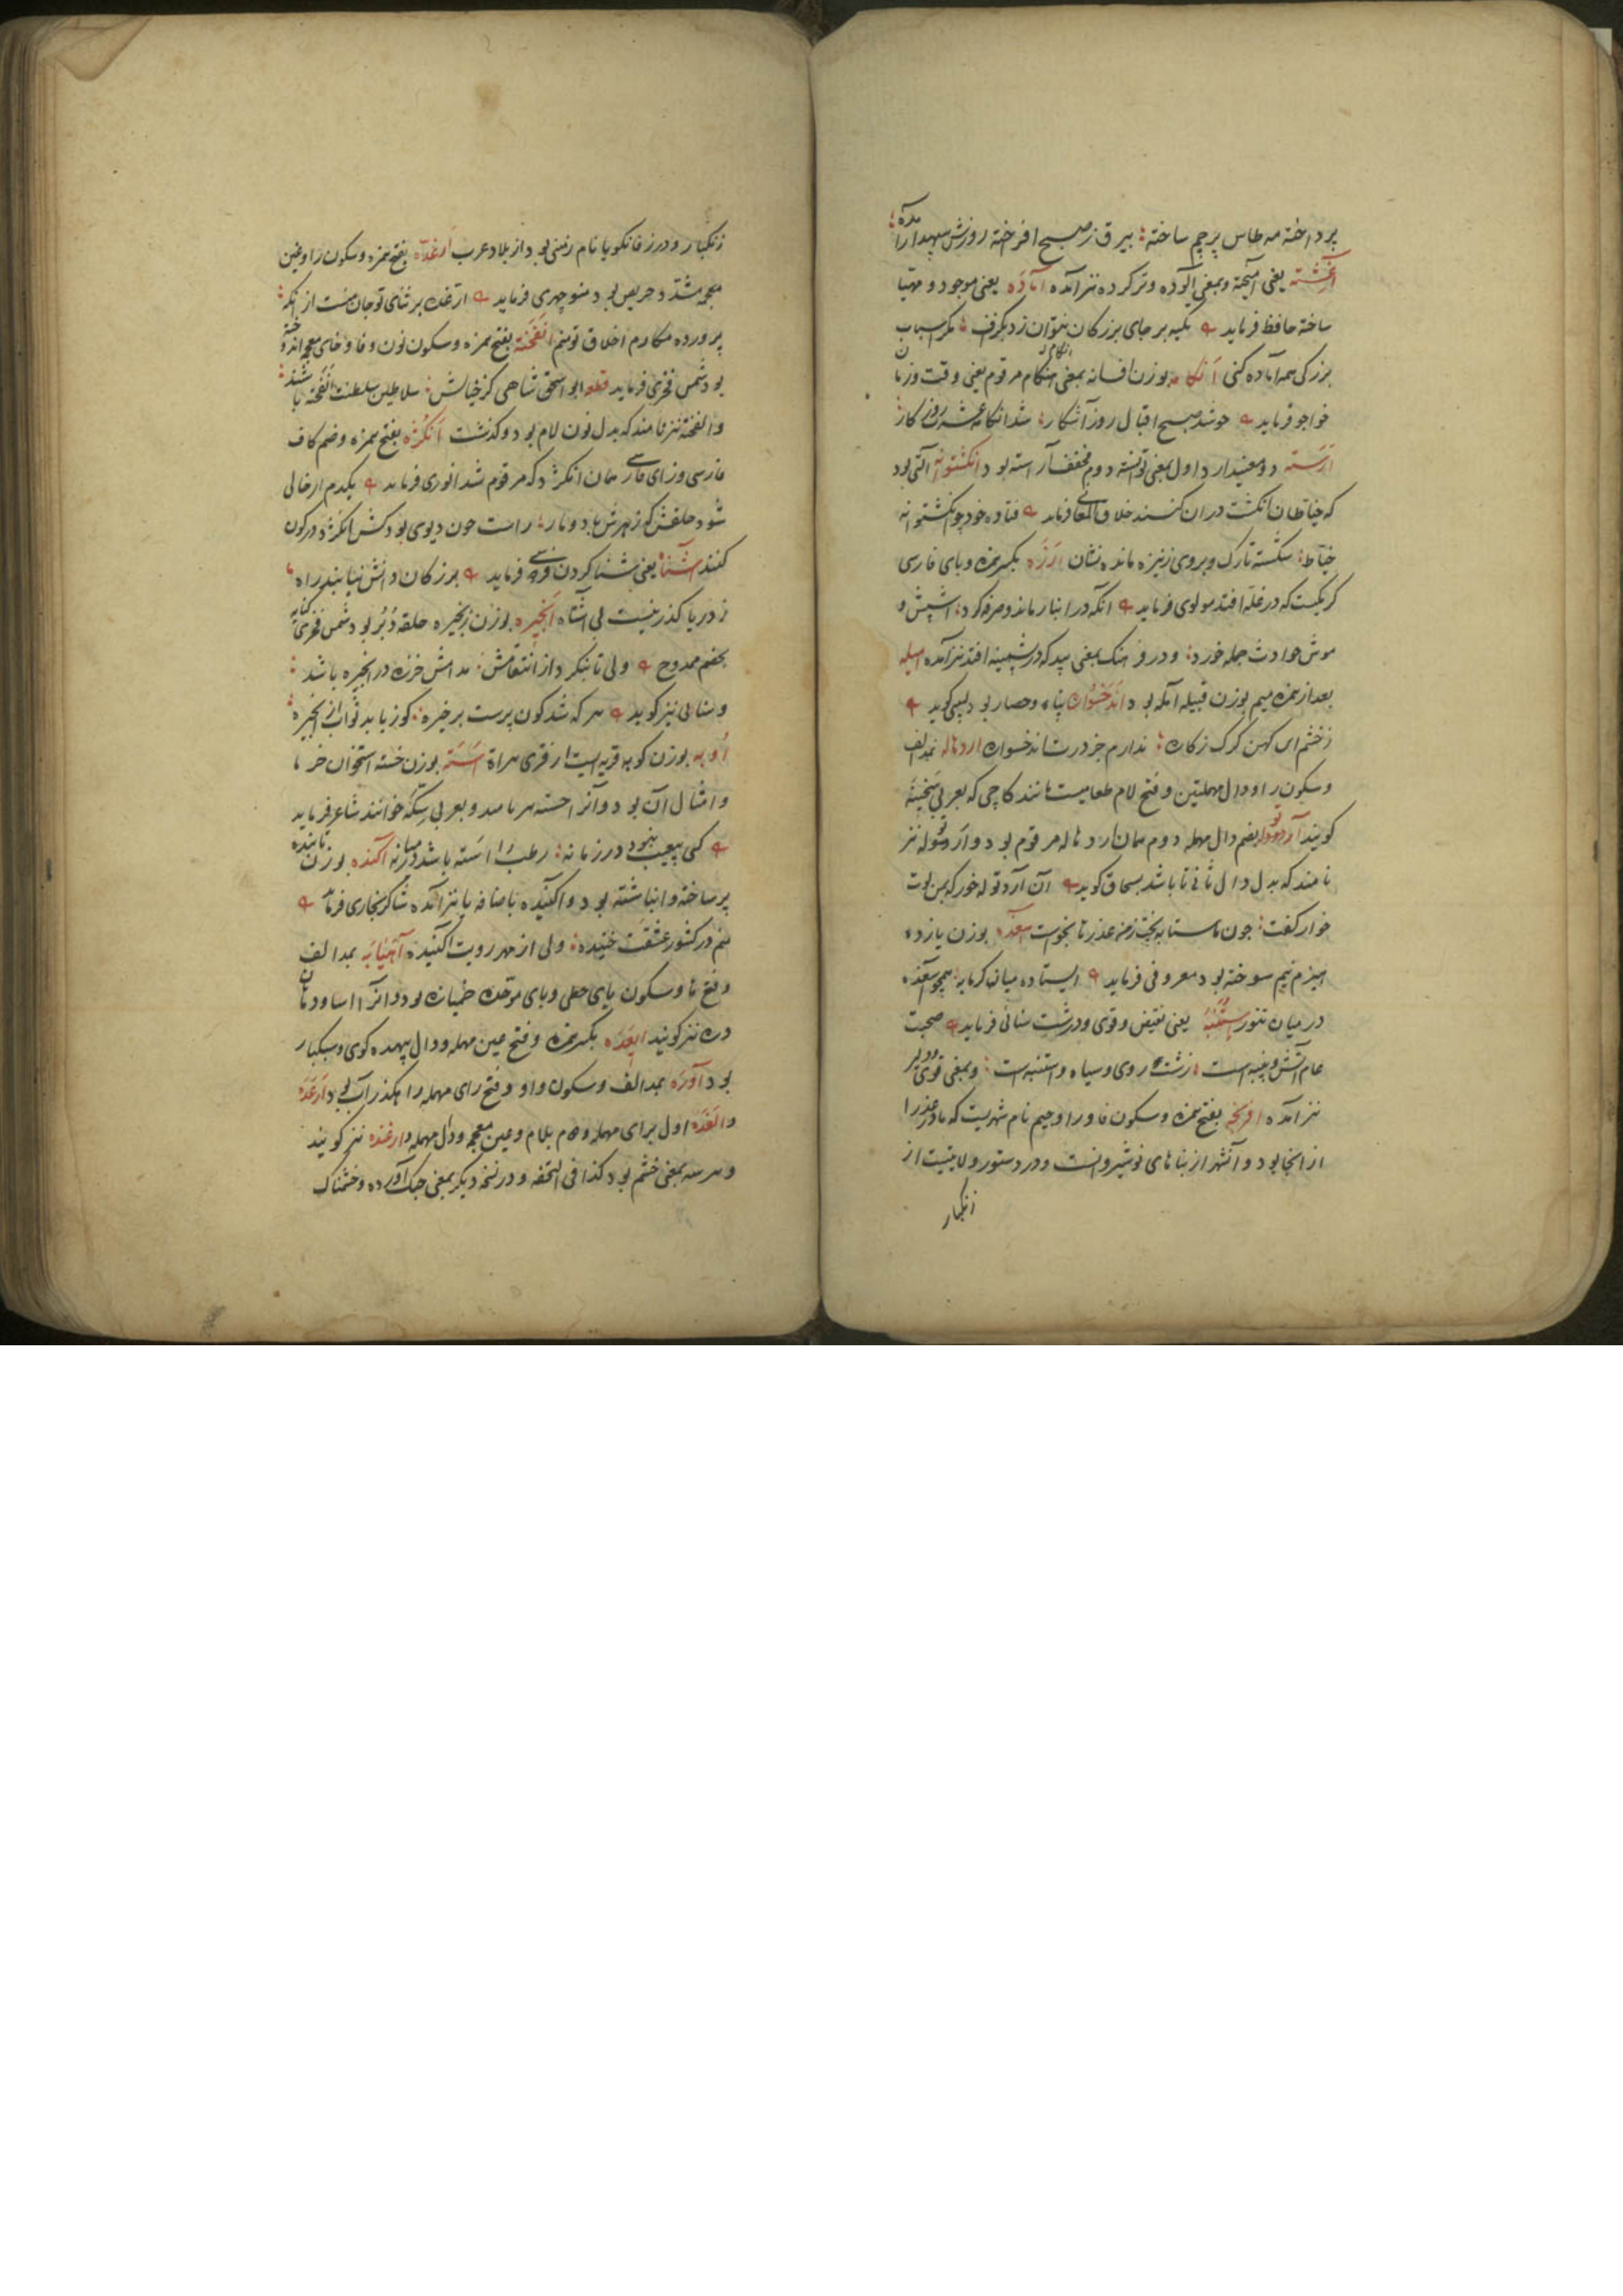 پرداخته مه طاس پرچم ساخته بیرق ز صبح افرخته روز سپیدار آمده
آغشته یعنی آمیخته و بمعنی آلوده و تر کرده نیز آمده آماده یعنی موجود و مهیا
ساخته حافظ فرماید تکیه بر جای بزرکان نتوان زد بکزاف مکر اسباب
بزرکی همه آماده کنی انکامه بوزن افسانه بمعنی هنکام مرقوم یعنی وقت و زمان
خواجو فرماید چو شد صبح اقبال روز آشکار شد انکامه عشرت روز کار
ارسته دو معنی دارد اول بمعنی توانسته دوم مخفف آراسته بود انکشتوانه آلتی بود
که خیاطان انکشت در ان کنند خلاق المعانی فرماید فتاده خود چو انکشتوانه
خیاط شکسته تارک و بر روی ز نیزه مانده نشان بکسر همزه و بای فارسی
کرمیست که در غله افتد مولوی فرماید آنکه در انبار ماند و صرفه کرد اشپش و
موش حوادث جمله خورد و در فرهنک بمعنی بید که در پشمینه افتد نیز آمده امیله
بعد از همزه میم بوزن قبیله آمله بود اندخسواره پناه و حصار بود لبیبی کوید
ز خشم ای کهن کرک ژکاره ندارم جز درت اندخسواره اردهاله بمد الف
و سکون را و دال مهملتین و فتح لام طعامیست مانند کاچی که بعربی سخینه
کویند آردودله بضم دال مهمله دوم همان اردهاله مرقوم بود و آردتوله نیز
نامند که بدل دال ثانی تا باشد بسحاق کوید آن آرد توله خور که بمن لوت
خوار کفت چون ماستابه پخت ز من عذرها بخواست سغده بوزن یازده
هیزم نیم سوخته بود معروفی فرماید ایستاده میان کرمابه همچو اسغده
در میان تنور ستنبه یعنی نقیض و قوی و درشت سنائی فرماید صحبت
عام آتش و پنبه است زشت روی و سیاه و استنبه است و بمعنی قوی و دلیر
نیز آمده افرنجه بفتح همزه و سکون فا و را و جیم نام شهریست که مادر عذرا
از انجا بود و آنشهر از بناهای نوشیروانست و در دستور ولایتیست از
زنکبار
زنکبار و در زفانکویا نام زمینی بود از بلاد عرب ارغده بفتح همزه و سکون را و غین
معجمه مشتد و حریص بود منوچهری فرماید ارغنده بر ثنای تو جان منست از انکه
پرورده مکارم اخلاق تو منم انفخته بفتح همزه و سکون نون و فا و خای معجمه اندوخته
بود شمس فخری فرماید قطعه ابو اسحق شاهی کز خیالش سلاطین سلطنت انفخته باشند
و الفخته نیز نامند که بدل نون لام بود و کذشت انکژه بفتح همزه و ضم کاف
فارسی و زای فارسی همان انکژد که مرقوم شد انوری فرماید یکدم ار خالی
شود حلقش که زهرش باد و مار راست چون دیوی بود کش انکژد در کون
کنند اشناه یعنی شنا کردن فردوسی فرماید بزرکان دانش نیابند راه
ز دریا کذر نیست بی اشناه انجیره بوزن زنجیره حلقه دبر بود شمس فخری کنایه
بخصم ممدوح ولی تا بنکرد از انتقامش مدامش خرزه در انجیره باشد
و سنایی نیز کوید هر که شد کون پرست برخیره کوز یابد ثواب از انجیره
اوبه بوزن کوبه قریه ایست از قری هراة استه بوزن خسته استخوان خرما
و امثال آن بود و آنرا خسته هم نامند و بعربی خوانند شاعر فرماید
کس بیعیب نبود در زمانه رطب را استه باشد در میانه آکنده بوزن تابنده
پر ساخته و انباشته بود و اکنیده باضافه یا نیز آمده شاکر بخاری فرماید
منم در کشور عشقت خنیده ولی از مهر رویت آکنیده آهنیابه بمد الف
و فتح ها و سکون یای حطی و بای موحده خمیازه بود و آنرا اسا و دهان
دره نیز کویند ابعده بکسر همزه و فتح عین مهمله و دال بیهده کوی و سبکبار
بود آوره بمد الف و سکون واو و فتح رای مهمله راهکذر آب بود ارغده
و الغده اول برای مهمله و دوم بلام و غین معجمه و دال مهمله و ارغنده نیز کویند
و هر سه بمعنی خشم بود کذا فی التحفه و در نسخه دیکر بمعنی جنک آورده و خشمناک